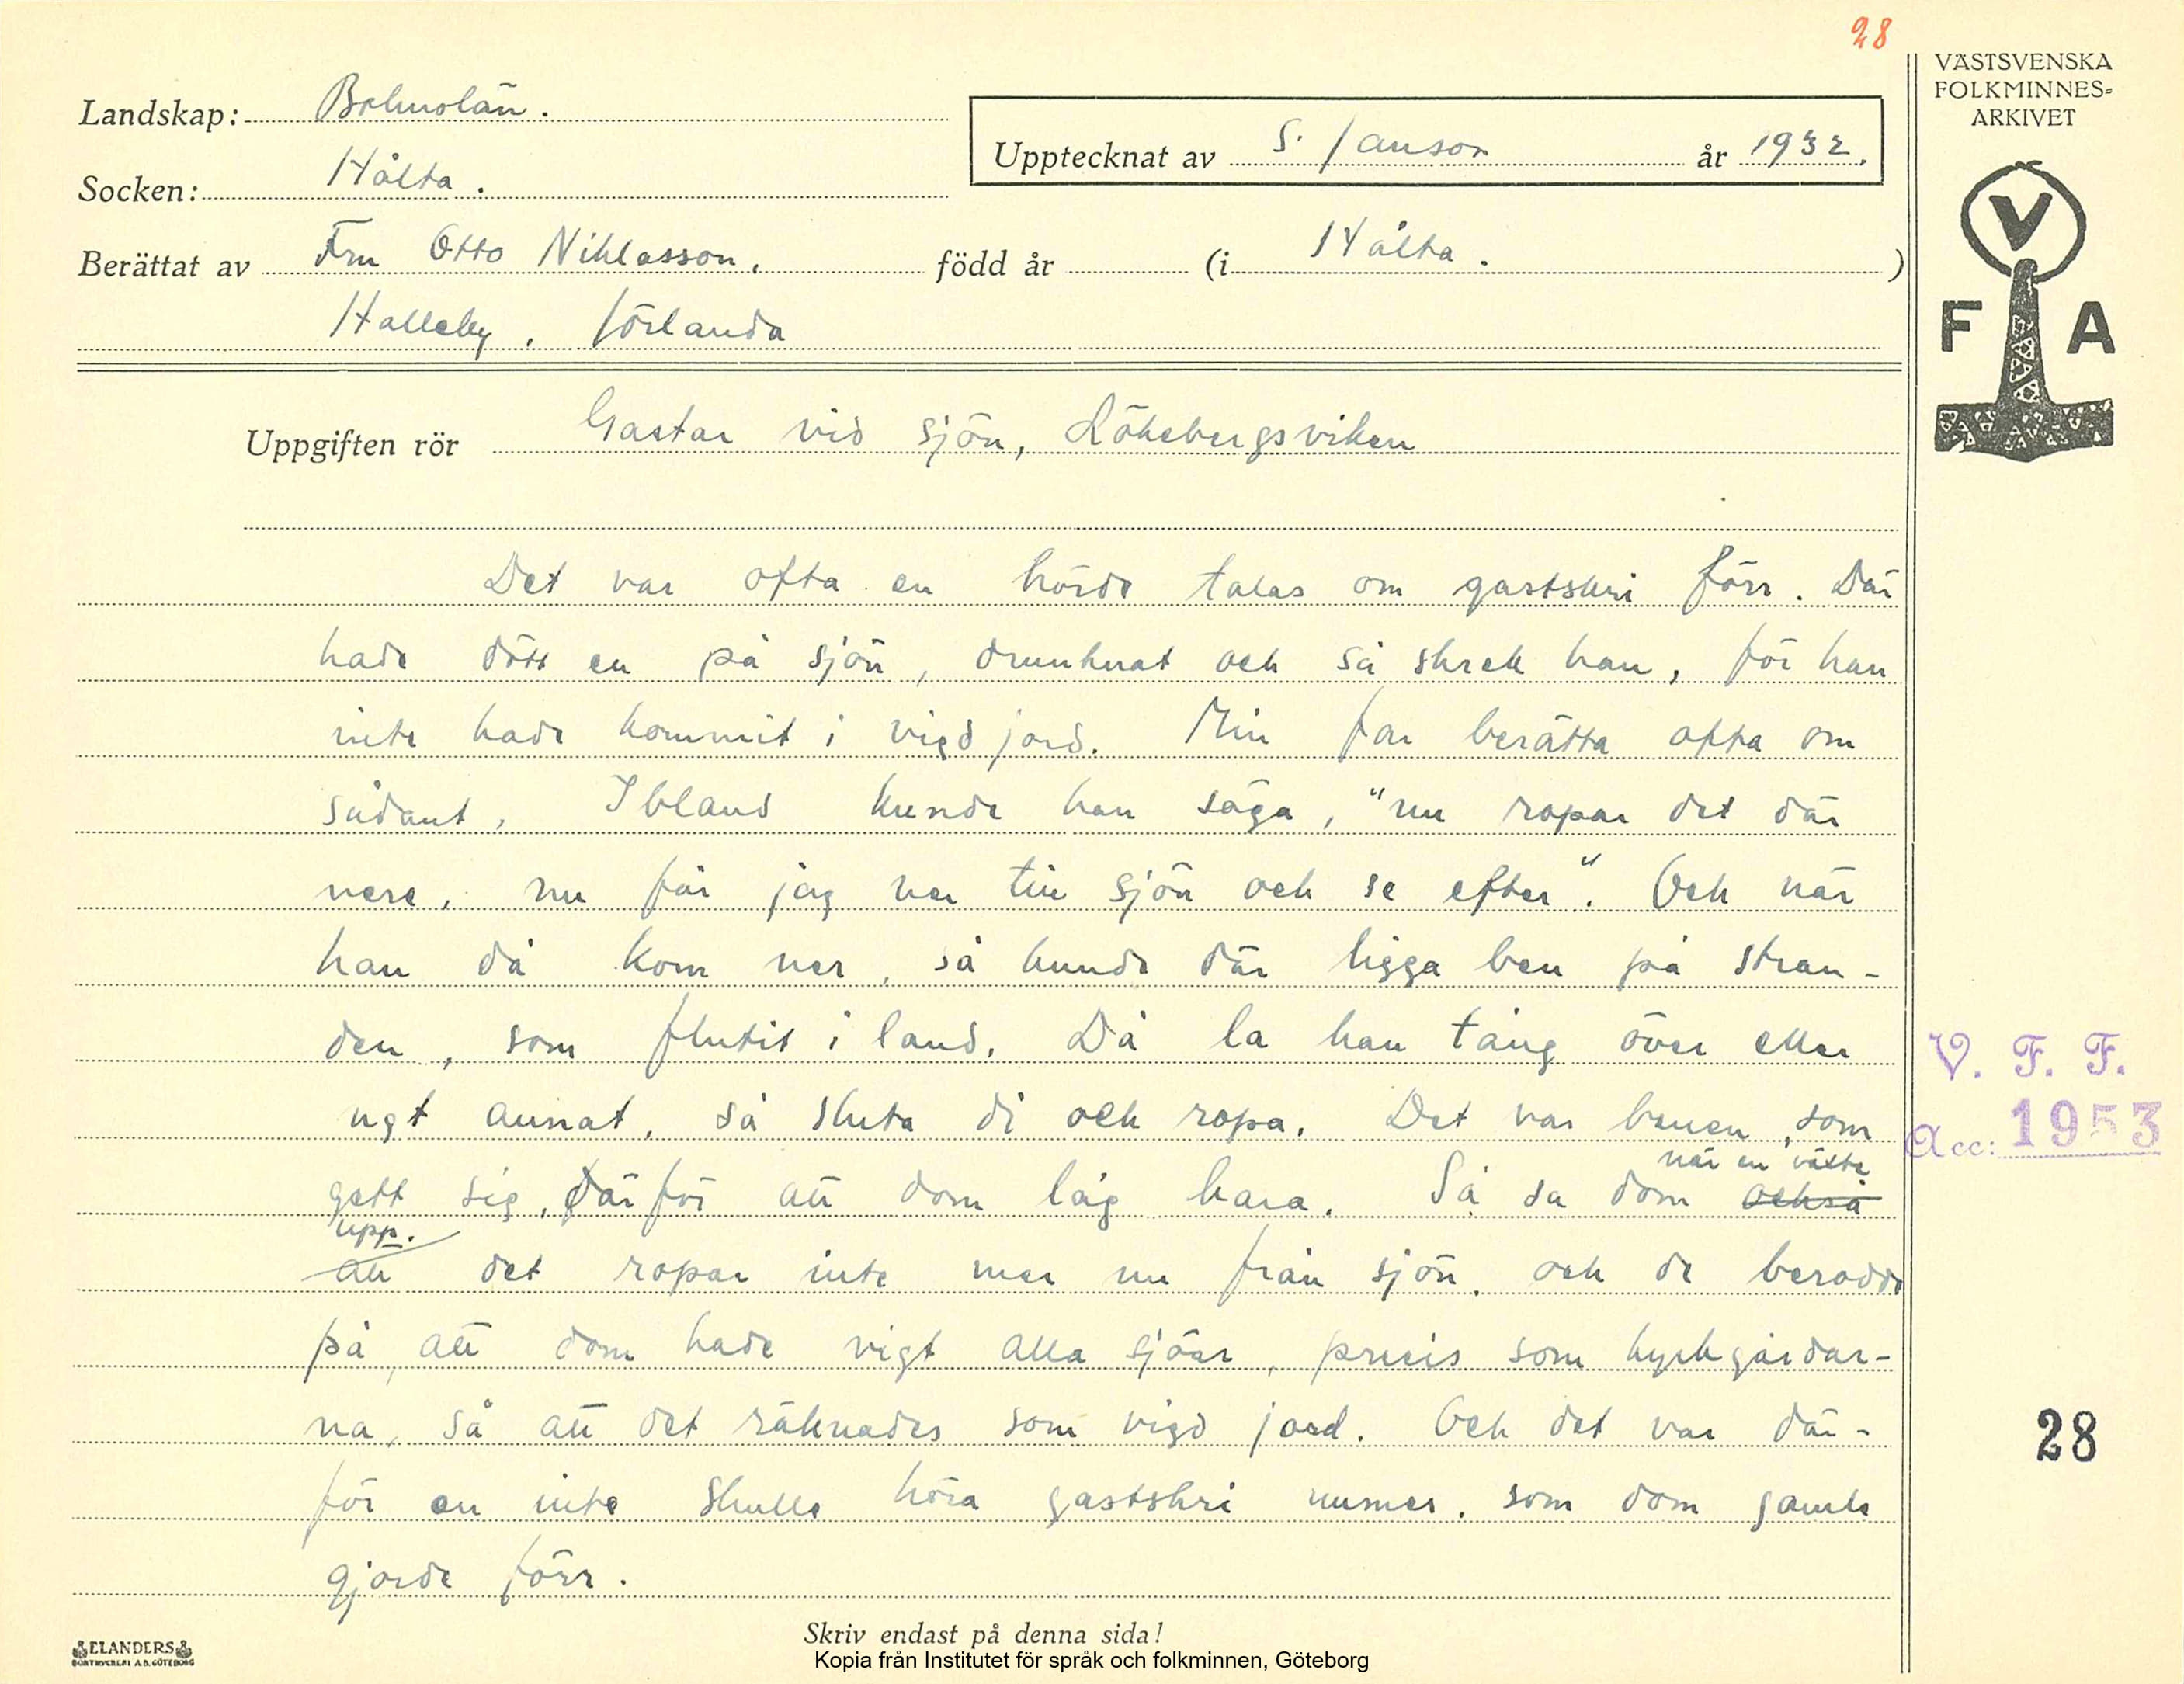 28
VÄSTSVENSKA
FOLKMINNES-
ARKIVET
Landskap: Bohuslän.
Upptecknat av S. Janson år 1932.
Socken: Hålta.
Berättat av Fru Otto Niklasson, född år (i Hålta.)
Halleby, Jörlanda
V
F A
Uppgiften rör Gastar vid sjön, Lökebergsviken
Det var ofta en hörde talas om gastskri förr. Där
hade dött en på sjön, drunknat och så skrek han, för han
inte hade kommit i vigd jord. Min far berätta ofta om
sådant, Ibland kunde han säga, "nu ropar det där
nere, nu får jag ner till sjön och se efter". Och när
han då kom ner, så kunde där ligga ben på stran-
den, som flutit i land. Då la han tång över eller
ngt annat, så sluta di och ropa. Det var benen, som
gett sig, därför att dom låg bara. Så sa dom också när en växte
upp. att det ropar inte mer nu från sjön, och de berodde
på, att dom hade vigt alla sjöar, precis som kyrkgårdar-
na, så att det räknades som vigd jord. Och det var där-
för en inte skulle höra gastskri numer, som dom gamle
gjorde förr.
V. F. F.
Acc: 1953
28
Skriv endast på denna sida!
ELANDERS
BOKTRYCKERI A.B. GÖTEBORG
Kopia från Institutet för språk och folkminnen, Göteborg